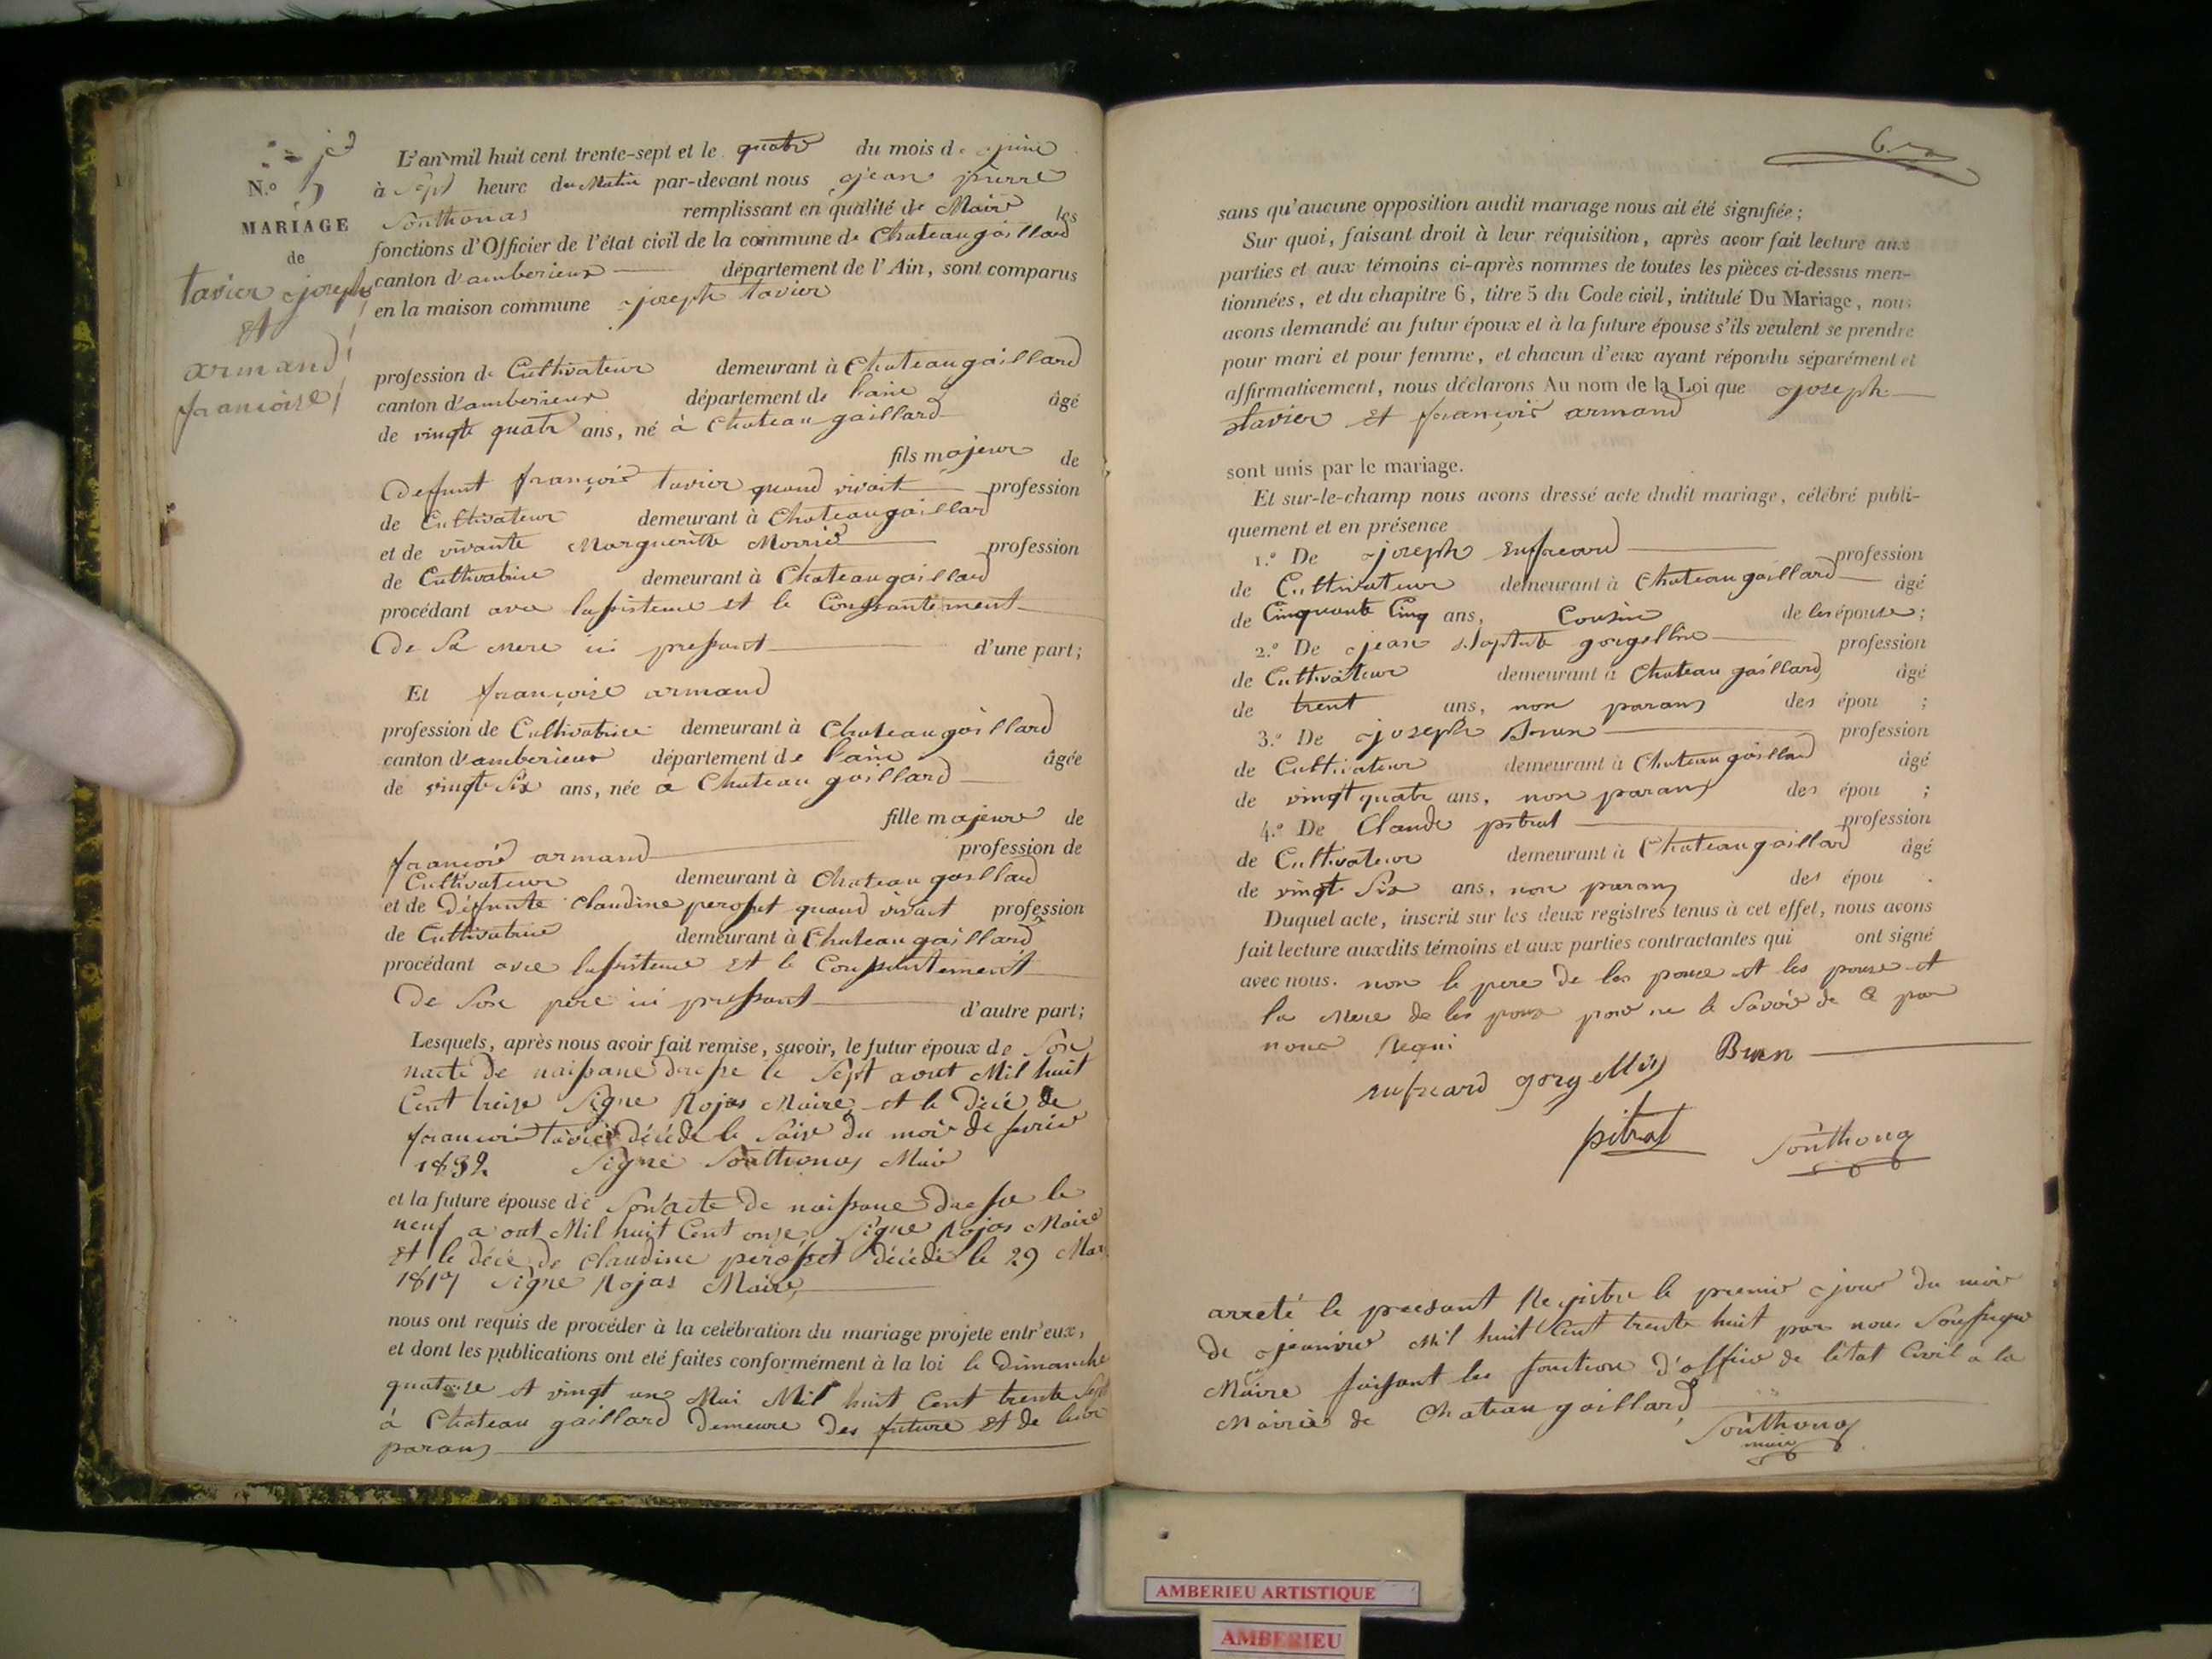 N.º 5
MARIAGE
de
tavier joseph
et
armand
françoise
L'an mil huit cent trente-sept et le quatre du mois de juin
à sept heure du Matin par-devant nous jean pierre
Southonas remplissant en qualité de Maire les
fonctions d'Officier de l'état civil de la commune de Chateaugaillard
canton d'amberieux département de l'Ain, sont comparus
en la maison commune joseph tavier
profession de Cultivateur demeurant à Chateaugaillard
canton d'amberieux département de lain âgé
de vingt quatr ans, né à Chateau gaillard
fils majeur de
Deffunt françois tavier quand vivait profession
de Cultivateur demeurant à Chateaugaillard
et de vivante Margueritte Morrié profession
de Cultivatrice demeurant à Chateaugaillard
procédant avec lassistence et le Conssantement
De Sa mere ici pressant d'une part;
Et françoise armand
profession de Cultivatrice demeurant à Chateaugaillard
canton d'amberieux département de lain âgée
de vingt Six ans, née a Chateau gaillard
fille majeure de
françois armand profession de
Cultivateur demeurant à Chateau gaillard
et de Défunte Claudine perosset quand vivait profession
de Cultivatrice demeurant à Chateau gaillard
procédant avec lassistence et le Conssantement
De Son pere ici pressant d'autre part;
Lesquels, après nous avoir fait remise, savoir, le futur époux de Son
nacte de naissance dresse le Sept aout Mil huit
Cent treize Signe Rojas Maire et le Décè de
françois tavier décéde le Saise du moi de fevrier
1832 Signe Southonas Maire
et la future épouse de Son acte de naissance dresse le
neuf aout Mil huit Cent onze Signe Rojas Maire
et le décé de Claudine perosset décédé le 29 Mar
1817 Signe Rojas Maire,
nous ont requis de procéder à la celébration du mariage projete entr'eux,
et dont les publications ont eté faites conformément à la loi le Dimanche
quatorze et vingt un Mai Mil huit Cent trente Sept
à Chateau gaillard Demeure Des future et de leur
parans
sans qu'aucune opposition audit mariage nous ait été signifiée;
Sur quoi, faisant droit à leur réquisition, après avoir fait lecture aux
parties et aux témoins ci-après nommes de toutes les pièces ci-dessus men-
tionnées, et du chapitre 6, titre 5 du Code civil, intitulé Du Mariage, nous
avons demandé au futur époux et à la future épouse s'ils veulent se prendre
pour mari et pour femme, et chacun d'eux ayant répondu séparément et
affirmativement, nous déclarons Au nom de la Loi que joseph
tavier et françoise armand
sont unis par le mariage.
Et sur-le-champ nous avons dressé acte dudit mariage, célébré publi-
quement et en présence
1.º De joseph rufieard profession
de Cultivateur demeurant à Chateaugaillard âgé
de Cinquante Cinq ans, Cousin de les épouse;
2.º De jean Baptiste gorgellin profession
de Cultivateur demeurant à Chateau gaillard âgé
de trent ans, non parans des épou ;
3.º De joseph Brun profession
de Cultivateur demeurant à Chateau gaillard âgé
de vingt quatr ans, non parans des épou ;
4.º De Claude pitrat profession
de Cultivateur demeurant à Chateaugaillard âgé
de vingt Six ans, non parans des épou .
Duquel acte, inscrit sur les deux registres tenus à cet effet, nous avons
fait lecture auxdits témoins et aux parties contractantes qui ont signé
avec nous. non le pere de les pouse et les pouse et
la Mere de les poux pour ne le Savoir de ce par
nous Requi
rufieard gorgellin Brun
pitrat Southonas
arreté le preesant Registre le premier jour du moir
de jeanvier Mil huit Cent trente huit par nous Soussigne
Maire faissant les fonction d'officier de létat Civil a la
Mairie de Chateau gaillard,
Southonas
maire
AMBERIEU ARTISTIQUE
AMBERIEU